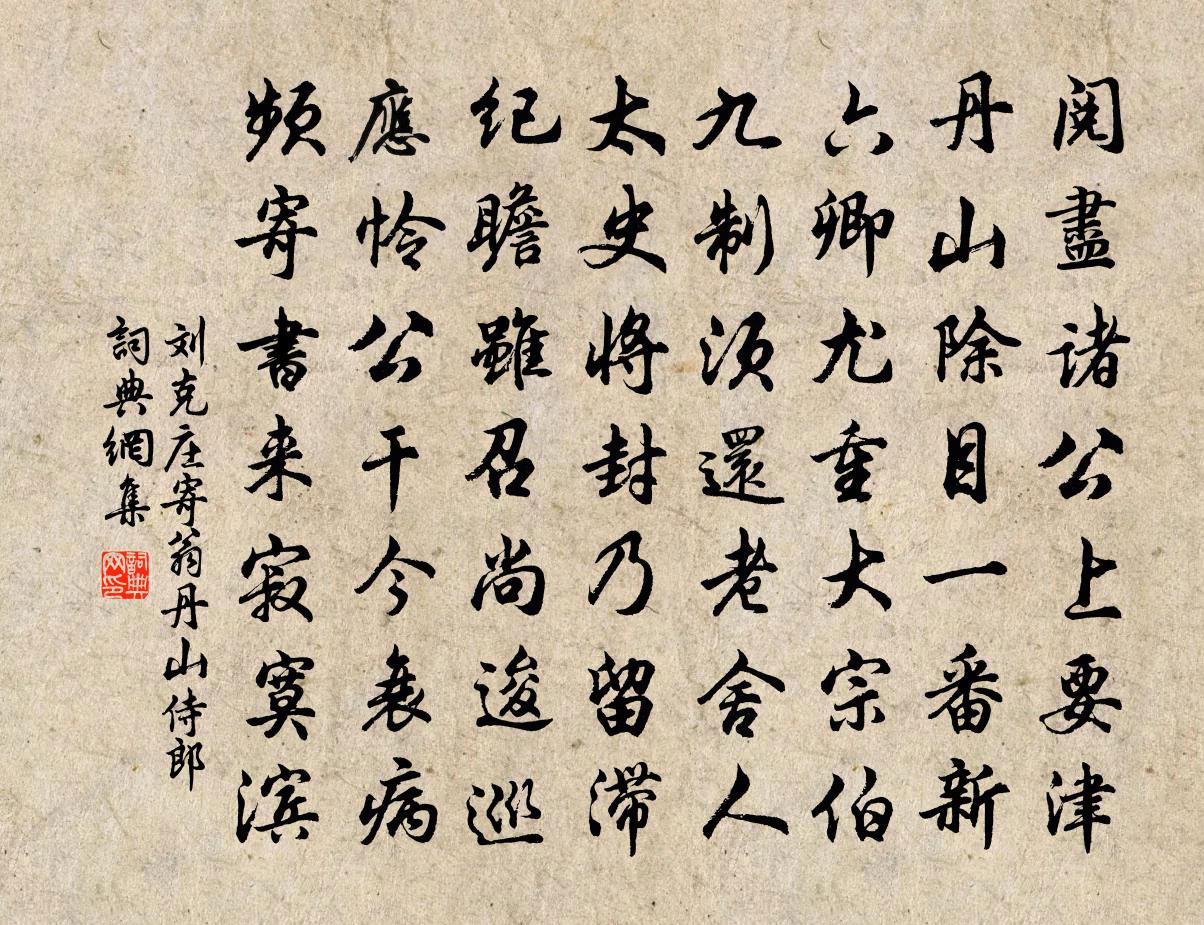 閱盡諸公上要津
丹山除目一番新
六卿尤重大宗伯
九制須還老舍人
太史將封乃留滯
紀瞻雖召尚逡巡
應怜公干今衰病
頻寄書来寂寞滨
刘克庄寄翁丹山侍郎
詞典網集
詞典网印